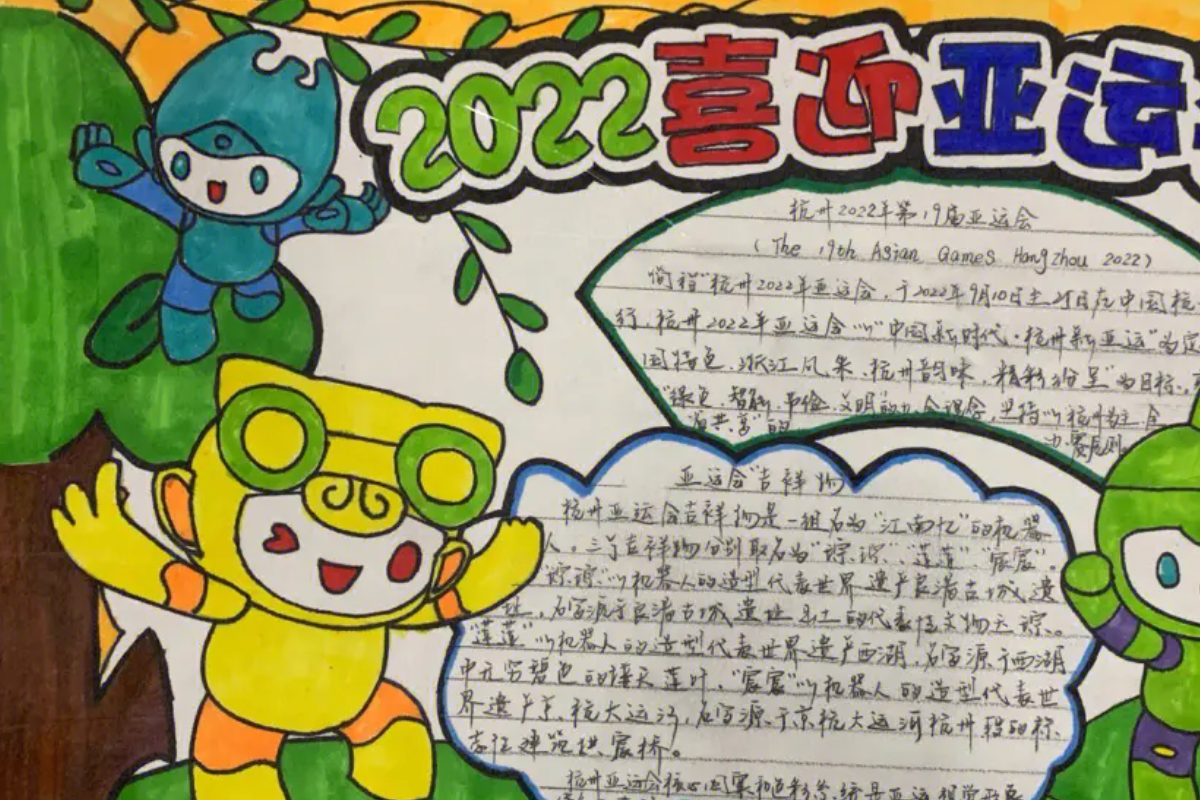 2022喜迎亚运
杭州2022年第19届亚运会
(The 19th Asian Games Hangzhou 2022)
简称"杭州2022年亚运会,于2022年9月10日至25日在中国杭
行.杭州2022年亚运会以"中国新时代·杭州新亚运"为定
国特色.浙江风采.杭州韵味.精彩纷呈"为目标.
"绿色.智能.节俭.文明的办会理念.坚持以杭州为主.全
省共享"的
办赛原则
亚运会"吉祥物
杭州亚运会吉祥物是一组名为"江南忆"的机器
人。三个吉祥物分别取名为"琮琮"、"莲莲"、"宸宸"。
"琮琮"以机器人的造型代表世界遗产良渚古城遗
址,名字源于良渚古城遗址出土的代表性文物玉琮。
"莲莲"以机器人的造型代表世界遗产西湖,名字源于西湖
中无穷碧色的接天莲叶,"宸宸"以机器人的造型代表世
界遗产京.杭大运河,名字源于京杭大运河杭州段的标
志性建筑拱宸桥。
杭州亚运会核心图案和色彩系统是亚运视觉